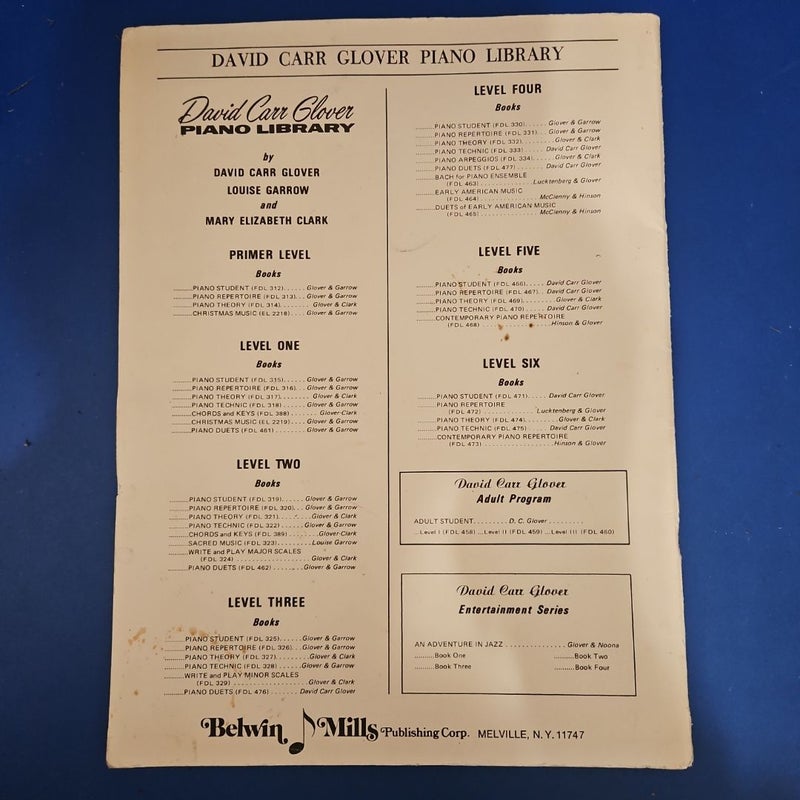 DAVID CARR GLOVER PIANO LIBRARY
David Carr Glover
PIANO LIBRARY
by
DAVID CARR GLOVER
LOUISE GARROW
and
MARY ELIZABETH CLARK
PRIMER LEVEL
Books
..........PIANO STUDENT (FDL 312)...... Glover & Garrow
..........PIANO REPERTOIRE (FDL 313)... Glover & Garrow
..........PIANO THEORY (FDL 314)........ Glover & Clark
..........CHRISTMAS MUSIC (EL 2218).... Glover & Garrow
LEVEL ONE
Books
..........PIANO STUDENT (FDL 315)...... Glover & Garrow
..........PIANO REPERTOIRE (FDL 316)... Glover & Garrow
..........PIANO THEORY (FDL 317)........ Glover & Clark
..........PIANO TECHNIC (FDL 318)...... Glover & Garrow
..........CHORDS and KEYS (FDL 388)....... Glover-Clark
..........CHRISTMAS MUSIC (EL 2219).... Glover & Garrow
..........PIANO DUETS (FDL 461)........ Glover & Garrow
LEVEL TWO
Books
..........PIANO STUDENT (FDL 319)...... Glover & Garrow
..........PIANO REPERTOIRE (FDL 320)... Glover & Garrow
..........PIANO THEORY (FDL 321)........ Glover & Clark
..........PIANO TECHNIC (FDL 322)...... Glover & Garrow
..........CHORDS and KEYS (FDL 389)....... Glover-Clark
..........SACRED MUSIC (FDL 323)......... Louise Garrow
..........WRITE and PLAY MAJOR SCALES
(FDL 324) .................. Glover & Clark
..........PIANO DUETS (FDL 462)........ Glover & Garrow
LEVEL THREE
Books
..........PIANO STUDENT (FDL 325)...... Glover & Garrow
..........PIANO REPERTOIRE (FDL 326)... Glover & Garrow
..........PIANO THEORY (FDL 327)........ Glover & Clark
..........PIANO TECHNIC (FDL 328)...... Glover & Garrow
..........WRITE and PLAY MINOR SCALES
(FDL 329) .................. Glover & Clark
..........PIANO DUETS (FDL 476)....... David Carr Glover
LEVEL FOUR
Books
..........PIANO STUDENT (FDL 330)...... Glover & Garrow
..........PIANO REPERTOIRE (FDL 331)... Glover & Garrow
..........PIANO THEORY (FDL 332)........ Glover & Clark
..........PIANO TECHNIC (FDL 333)..... David Carr Glover
..........PIANO ARPEGGIOS (FDL 334)..... Glover & Clark
..........PIANO DUETS (FDL 477)....... David Carr Glover
..........BACH for PIANO ENSEMBLE
(FDL 463) ............. Lucktenberg & Glover
..........EARLY AMERICAN MUSIC
(FDL 464) ............... McClenny & Hinson
..........DUETS of EARLY AMERICAN MUSIC
(FDL 465) ............... McClenny & Hinson
LEVEL FIVE
Books
..........PIANO STUDENT (FDL 466)..... David Carr Glover
..........PIANO REPERTOIRE (FDL 467).. David Carr Glover
..........PIANO THEORY (FDL 469)........ Glover & Clark
..........PIANO TECHNIC (FDL 470)..... David Carr Glover
..........CONTEMPORARY PIANO REPERTOIRE
(FDL 468) ................. Hinson & Glover
LEVEL SIX
Books
..........PIANO STUDENT (FDL 471)..... David Carr Glover
..........PIANO REPERTOIRE
(FDL 472) ............. Lucktenberg & Glover
..........PIANO THEORY (FDL 474)........ Glover & Clark
..........PIANO TECHNIC (FDL 475)..... David Carr Glover
..........CONTEMPORARY PIANO REPERTOIRE
(FDL 473) ................. Hinson & Glover
David Carr Glover
Adult Program
ADULT STUDENT......... D. C. Glover ..........
...Level I (FDL 458) ...Level II (FDL 459) ...Level III (FDL 460)
David Carr Glover
Entertainment Series
AN ADVENTURE IN JAZZ ............... Glover & Noona
..........Book One ..........Book Two
..........Book Three ..........Book Four
Belwin Mills Publishing Corp. MELVILLE, N.Y. 11747